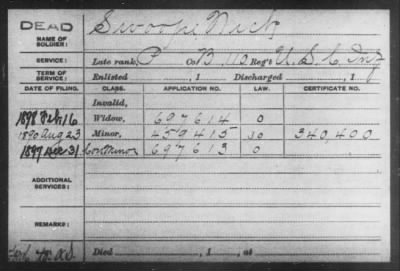 DEAD
NAME OF SOLDIER: Swoope Nick
SERVICE: Late rank, P Co. B, 110 Reg't U.S.C. Inf
TERM OF SERVICE: Enlisted , 1 Discharged , 1
DATE OF FILING. CLASS. APPLICATION NO. LAW. CERTIFICATE NO.
Invalid,
1898 Feb 16 Widow, 697614 0
1890 Aug 23 Minor, 459415 30 340,400
1897 Dec 31 Cont Minor 697613 0
ADDITIONAL SERVICES:
REMARKS:
Died , 1 , at